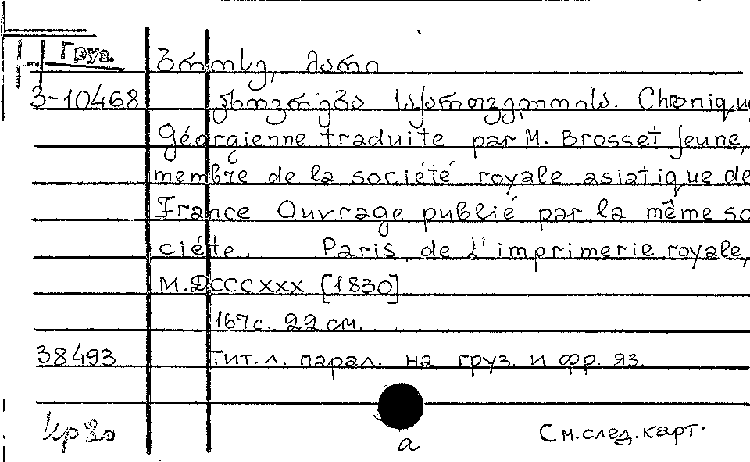 Груз.
ბროსე, მარი
3-10468 ცხოვრება საქართველოისა. Chronique
Géorgienne traduite par M. Brosset jeune,
membre de la société royale asiatique de
France Ouvrage publié par la même so
ciéte. Paris, de l'imprimerie royale,
M.DCCCXXX [1830]
167 с. 22 см.
38493 Тит. л. парал. на груз. и фр. яз.
См. след. карт.
а